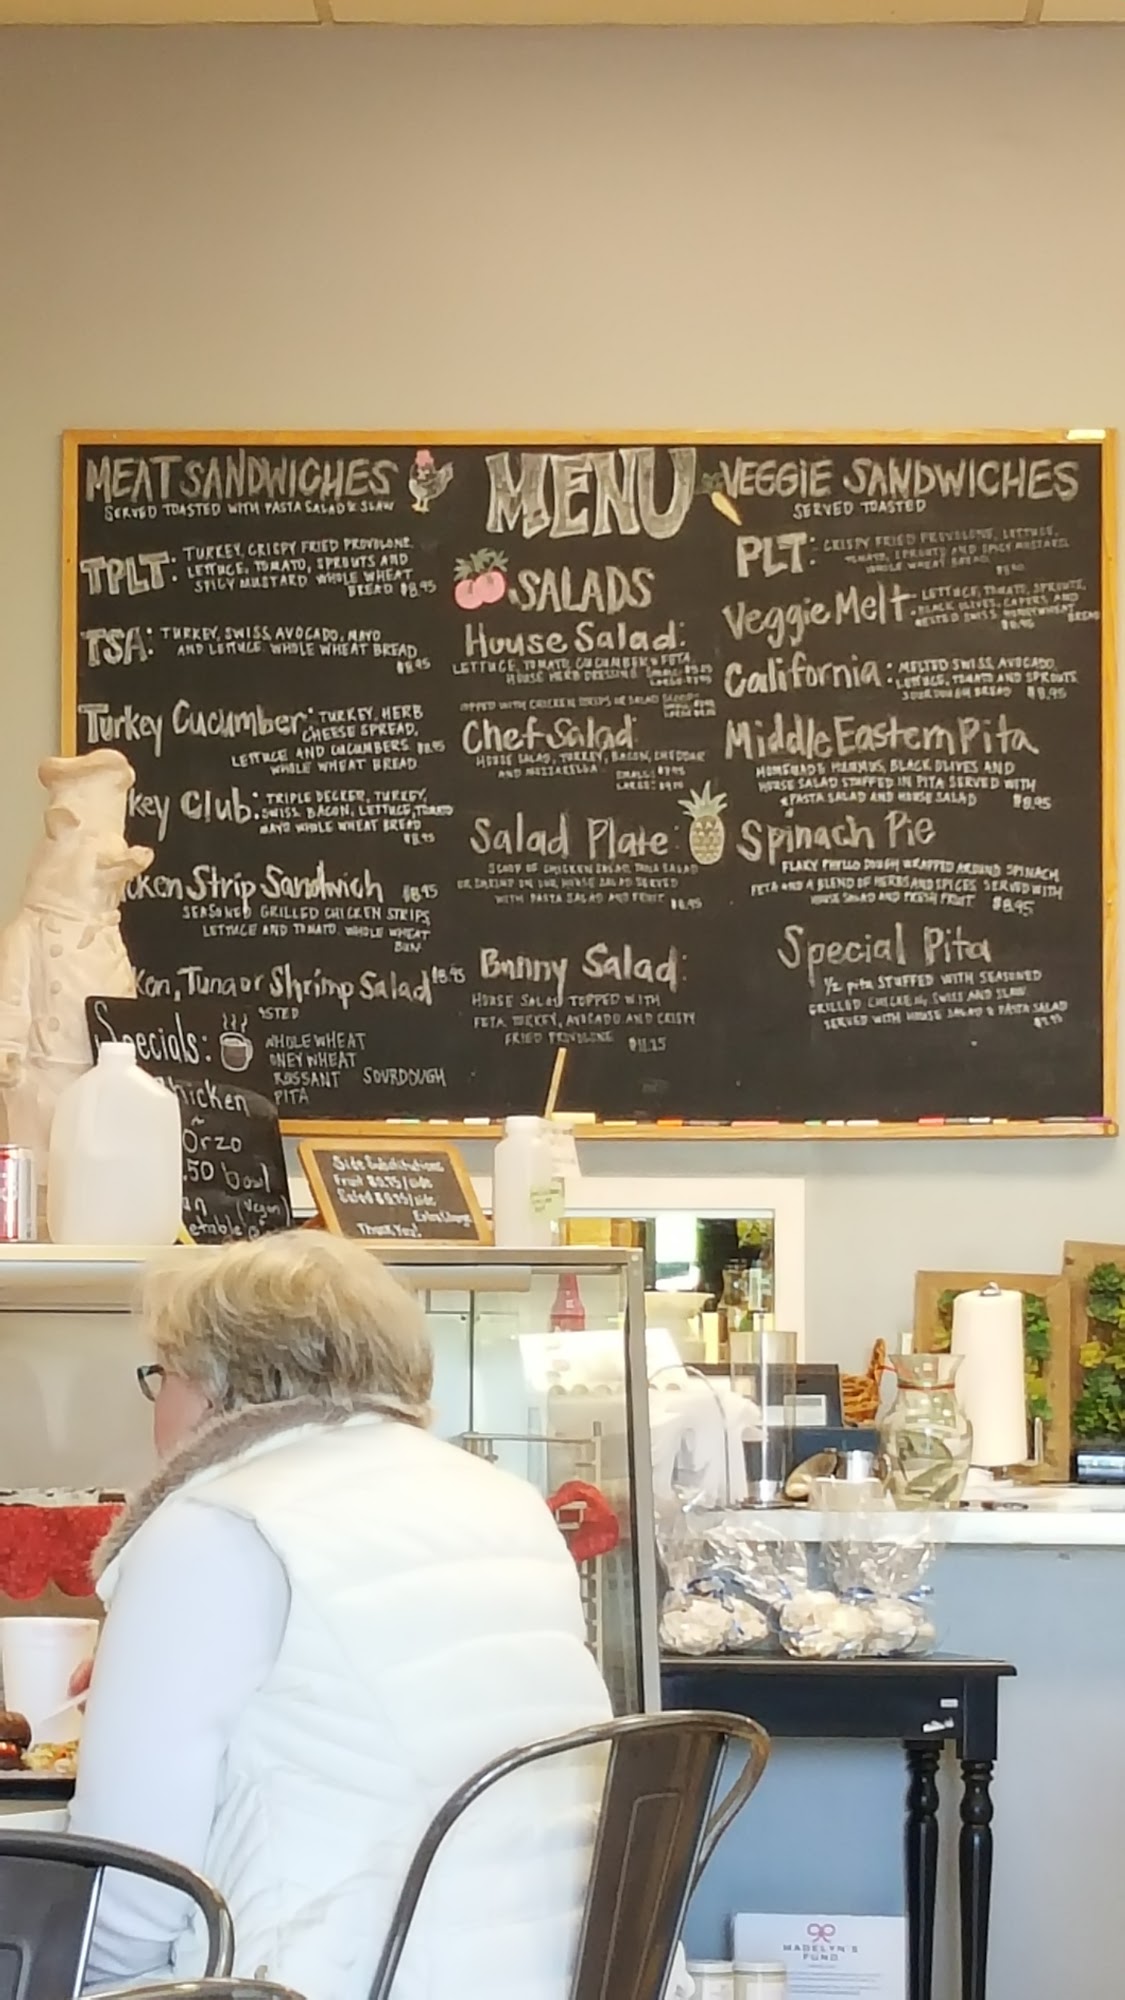 MEAT SANDWICHES
SERVED TOASTED WITH PASTA SALAD & SLAW
TPLT: TURKEY, CRISPY FRIED PROVOLONE,
LETTUCE, TOMATO, SPROUTS AND
SPICY MUSTARD WHOLE WHEAT
BREAD $8.95
TSA: TURKEY, SWISS, AVOCADO, MAYO
AND LETTUCE WHOLE WHEAT BREAD
$8.95
Turkey Cucumber: TURKEY, HERB
CHEESE SPREAD,
LETTUCE AND CUCUMBERS $8.95
WHOLE WHEAT BREAD
key Club: TRIPLE DECKER, TURKEY,
SWISS, BACON, LETTUCE, TOMATO
MAYO WHOLE WHEAT BREAD
$8.95
cken Strip Sandwich $8.95
SEASONED GRILLED CHICKEN STRIPS,
LETTUCE AND TOMATO. WHOLE WHEAT
BUN
ken, Tuna or Shrimp Salad $8.95
STED
WHOLE WHEAT
ONEY WHEAT
ROSSANT SOURDOUGH
PITA
MENU
SALADS
House Salad:
LETTUCE, TOMATO, CUCUMBER & FETA
HOUSE HERB DRESSING SMALL:
LARGE:
TOPPED WITH CHICKEN STRIPS OR SALAD SCOOP:
Chef Salad:
HOUSE SALAD, TURKEY, BACON, CHEDDAR
AND MOZZARELLA SMALL: $7.95
LARGE:
Salad Plate:
SCOOP OF CHICKEN SALAD, TUNA SALAD
OR SHRIMP ON OUR HOUSE SALAD SERVED
WITH PASTA SALAD AND FRUIT $8.95
Bunny Salad:
HOUSE SALAD TOPPED WITH
FETA, TURKEY, AVOCADO AND CRISPY
FRIED PROVOLONE $11.25
VEGGIE SANDWICHES
SERVED TOASTED
PLT: CRISPY FRIED PROVOLONE, LETTUCE,
TOMATO, SPROUTS AND SPICY MUSTARD
WHOLE WHEAT BREAD
Veggie Melt: LETTUCE, TOMATO, SPROUTS,
BLACK OLIVES, CAPERS AND
MELTED SWISS HONEYWHEAT BREAD
$8.95
California: MELTED SWISS, AVOCADO,
LETTUCE, TOMATO AND SPROUTS
SOURDOUGH BREAD $8.95
Middle Eastern Pita
HOMEMADE HUMMUS, BLACK OLIVES AND
HOUSE SALAD STUFFED IN PITA SERVED WITH
PASTA SALAD AND HOUSE SALAD $8.95
Spinach Pie
FLAKY PHYLLO DOUGH WRAPPED AROUND SPINACH
FETA AND A BLEND OF HERBS AND SPICES SERVED WITH
HOUSE SALAD AND FRESH FRUIT $8.95
Special Pita
1/2 pita STUFFED WITH SEASONED
GRILLED CHICKEN, SWISS AND SLAW
SERVED WITH HOUSE SALAD & PASTA SALAD
Specials:
hicken
~
Orzo
.50 bowl
(vegan)
etable
Side Substitutions
Fruit $0.75/side
Salad $0.75/side
Extra Charge
Thank You!
MADELYN'S
FUND